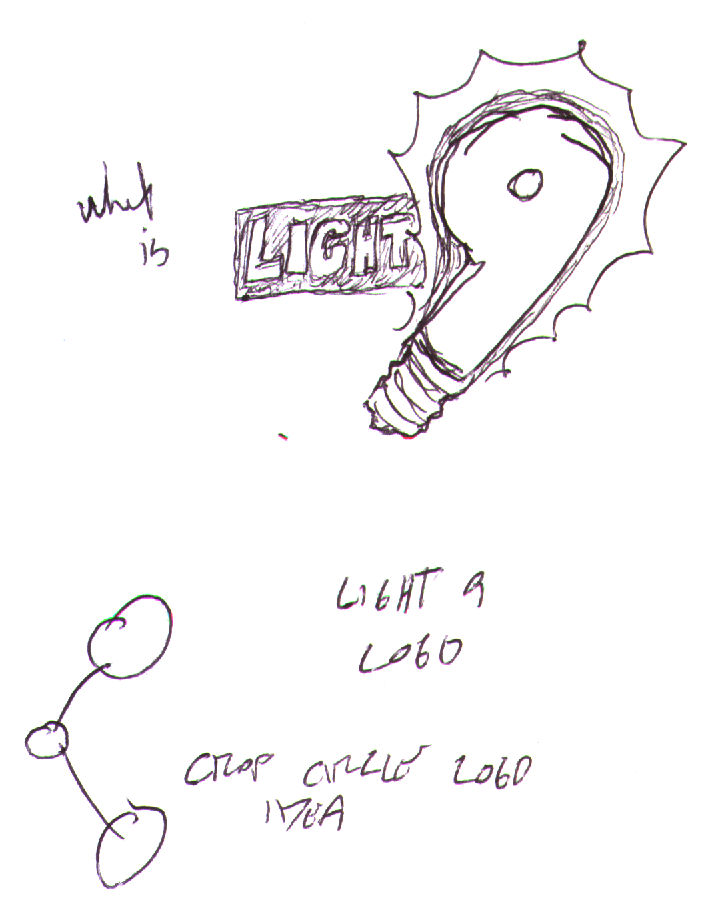 what
is
LIGHT 9
LIGHT 9
LOGO
CROP CIRCLE LOGO
IDEA